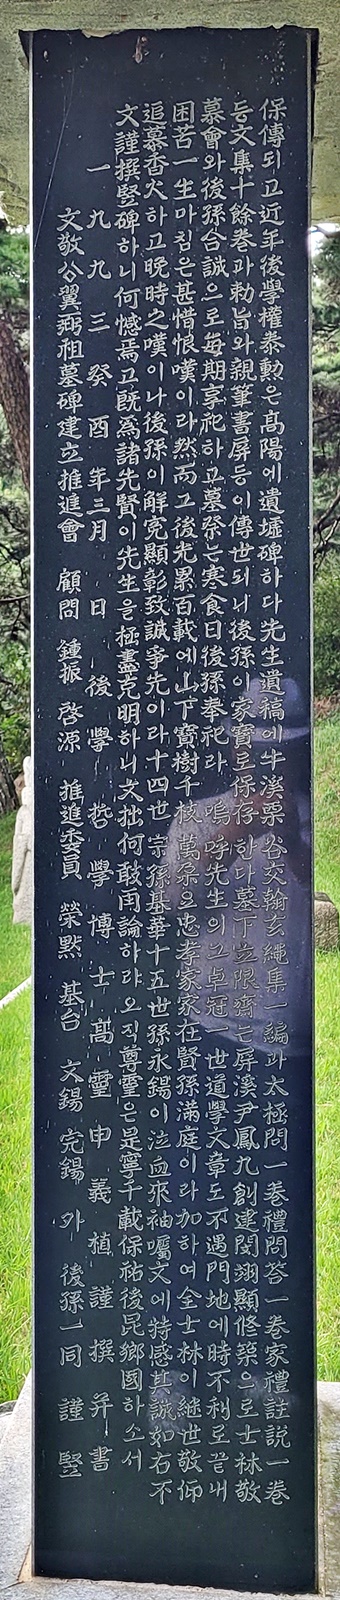 保傳되고近年後學權泰勳은高陽에遺墟碑하다先生遺稿에牛溪栗谷交翰玄繩集一編과太極問一卷禮問答一卷家禮註說一卷
等文集十餘卷과勅旨와親筆書屛等이傳世되니後孫이家寶로保存한다墓下立限齋는屛溪尹鳳九創建閔翊顯修築으로士林敬
慕會와後孫合誠으로每期享祀하고墓祭는寒食日後孫奉祀라 嗚呼先生의그卓冠一世道學文章도不遇門地에時不利로끝내
困苦一生마침은甚惜恨嘆이라然而그後光累百載에山下寶樹千枝萬朶요忠孝家家在賢孫滿庭이라加하여全士林이繼世敬仰
追慕香火하고晩時之嘆이나後孫이解寃顯彰致誠爭先이라十四世宗孫基華十五世孫永錫이泣血來袖囑文에特感其誠如右不
文謹撰竪碑하니何憾焉고旣爲諸先賢이先生을極盡克明하니文拙何敢用論하랴오직尊靈은是寧千載保祐後昆鄕國하소서
一九九三癸酉年三月 日 後學 哲學博士 高靈申義植謹撰并書
文敬公翼弼祖墓碑建立推進會 顧問 鍾振 啓源 推進委員 榮默 基台 文錫 完錫 外 後孫一同 謹竪